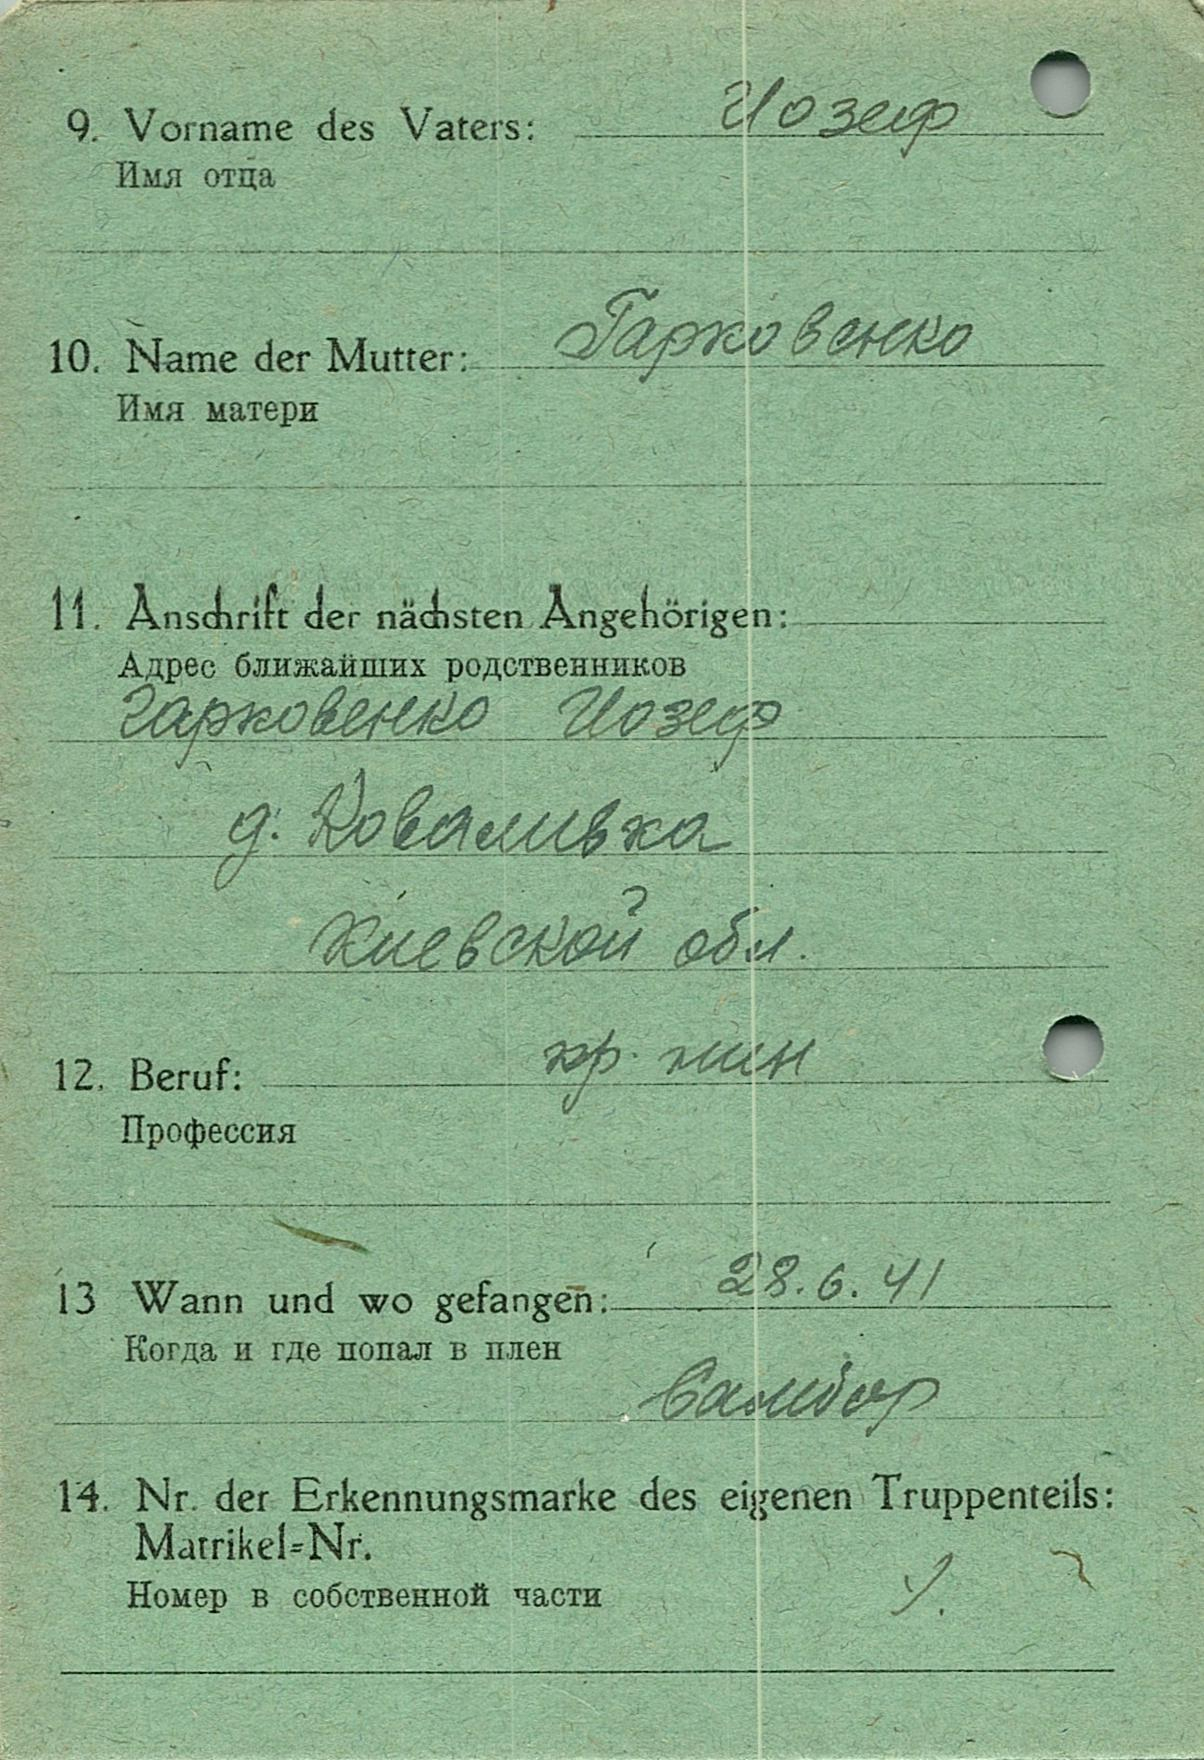 9. Vorname des Vaters: Иозеф
Имя отца
10. Name der Mutter: Гарковенко
Имя матери
11. Anschrift der nächsten Angehörigen:
Адрес ближайших родственников
Гарковенко Иозеф
д. Коваливка
Киевской обл.
12. Beruf: кр.
Профессия
13 Wann und wo gefangen: 28.6.41
Когда и где попал в плен
Самбор
14. Nr. der Erkennungsmarke des eigenen Truppenteils:
Matrikel=Nr.
Номер в собственной части